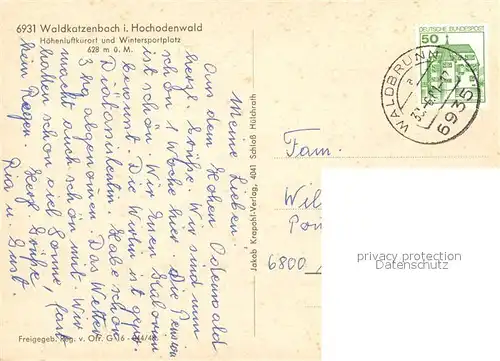 6931 Waldkatzenbach i. Hochodenwald
Höhenluftkurort und Wintersportplatz
628 m ü. M.
Meine Lieben.
Aus dem Hohen Odenwald
herzl. Grüße. Wir sind nun
schon 1 Woche hier. Die Pension
ist schön. Wir
bekommt. Die Wirtin ist gepr.
Diätassistentin. Habe schon
3 kg abgenommen. Das Wetter
macht auch schön mit. Wir
hatten schon viel Sonne, fast
kein Regen. Herzl. Grüße
Ria u. Gust.
Freigegeb. Reg. v. Ofr. G
Jakob Krapohl-Verlag, 4041 Schloß Hülchrath
50
DEUTSCHE BUNDESPOST
WALDBRUNN
6935
Fam.
Wil
6800
privacy protection
Datenschutz